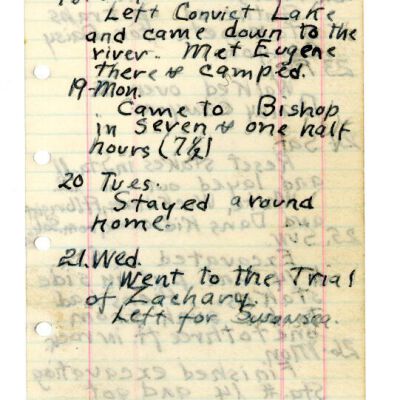 Left Convict Lake
and came down to the
river. Met Eugene
there & camped.
19-Mon.
Came to Bishop
in Seven & one half
hours (7½)
20 Tues.
Stayed around
home.
21. Wed.
Went to the Trial
of Zachary.
Left for Swansea.